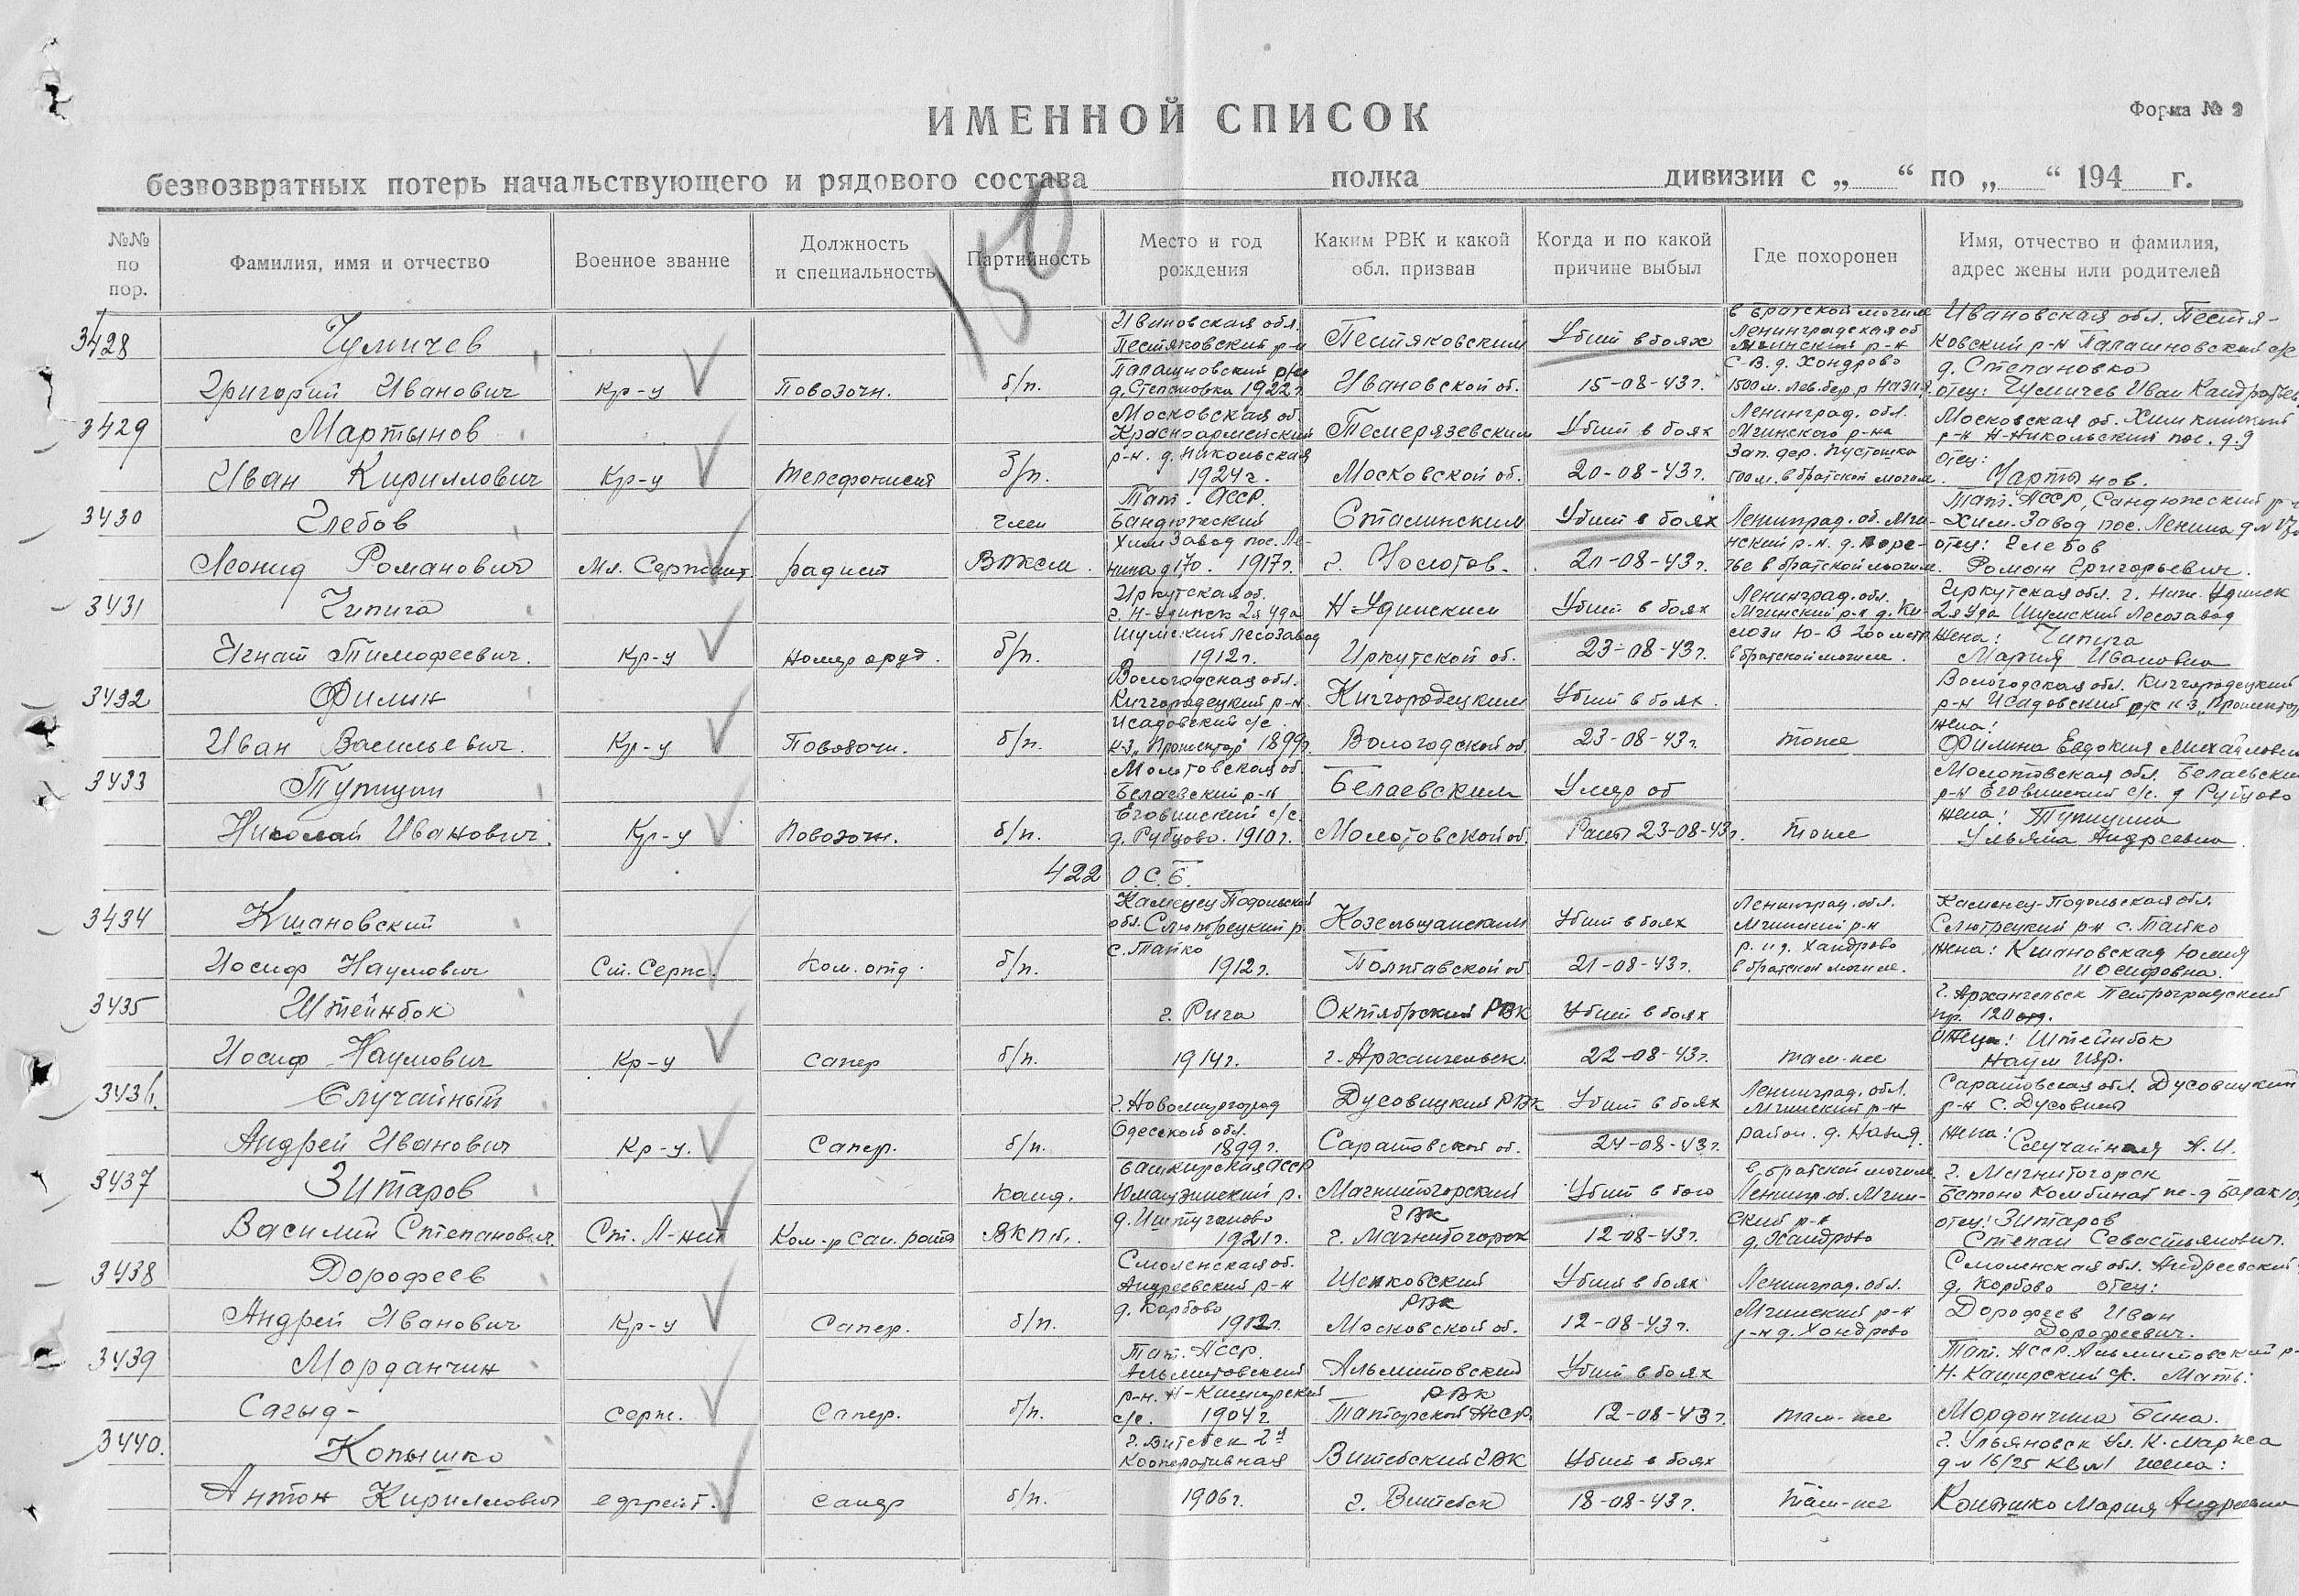 ИМЕННОЙ СПИСОК
Форма № 2
безвозвратных потерь начальствующего и рядового состава полка дивизии с „ “ по „ “ 194 г.
150
№№ по пор.
Фамилия, имя и отчество
Военное звание
Должность и специальность
Партийность
Место и год рождения
Каким РВК и какой обл. призван
Когда и по какой причине выбыл
Где похоронен
Имя, отчество и фамилия, адрес жены или родителей
3428
Чумичев
Григорий Иванович
Кр-ц
Повозочн.
б/п.
Ивановская обл.
Пестяковский р-н
д. Степановка 1922 г.
Пестяковским
Ивановской об.
Убит в боях
15-08-43г.
в братской могиле
Ленинградская об
Мгинский р-н
С-В. д. Хондрово
1500 м. лев. бер. р Назия.
Ивановская обл. Пестя-
ковский р-н Палашновский с/с
д. Степановка
отец: Чумичев Иван
3429
Мартынов
Иван Кириллович
Кр-ц
Телефонист
б/п.
Московская об.
Красноармейский
р-н. д. Никольская
1924г.
Темерязевским
Московской об.
Убит в боях
20-08-43г.
Ленинград. обл.
Мгинского р-на
Зап. дер. Пустошка
500м. в братской могил.
Московская об. Химкинский
р-н Н-Никольский пос. д. 9
отец:
Мартынов.
3430
Глебов
Леонид Романович
Мл. Сержант.
радист
член
ВЛКСМ.
Тат. АССР.
Бандюжский
Хим Завод пос. Ле-
нина д 170. 1917г.
Сталинским
г. Молотов.
Убит в боях
20-08-43г.
Ленинград. об. Мги-
нский р-н. д. Поре-
чье в братской могиле.
Хим. Завод пос. Ленина
отец: Глебов
Роман Григорьевич.
3431
Чипига
Игнат Тимофеевич.
Кр-ц
Номер оруд.
б/п.
Иркутская об.
г. Н-Удинск 2я Уда
Шумский лесозавод
1912г.
Н Удинским
Иркутской об.
Убит в боях
23-08-43г.
Ленинград. обл.
Мгинский р-н
Ю-В 200 метр
в братской могиле.
Иркутская обл. г. Ниж. Удинск
2я Уда Шумский Лесозавод
Жена: Чипига
Мария Ивановна
3432
Филин
Иван Васильевич.
Кр-ц
Повозочн.
б/п.
Вологодская обл.
Кичгородецкий р-н.
Исадовский с/с.
1899г.
Кичгородецким
Вологодской об
Убит в боях.
23-08-43г.
тоже
Вологодская обл. Кичгородецкий
р-н Исадовский с/с
жена:
Филина Евдокия Михайловна
3433
Тупицин
Николай Иванович.
Кр-ц
Повозочн.
б/п.
Молотовская об.
Белаевский р-н
Еговинский с/с.
д. Рубцово. 1910г.
Белаевским
Молотовской об.
Умер от
Ран 23-08-43г.
тоже
Молотовская обл. Белаевский
р-н Еговинский с/с. д Рубцово
жена: Тупицина
Ульяна Андреевна.
422 О.С.Б.
3434
Кшановский
Иосиф Наумович
Ст. Серж.
Ком. отд.
б/п.
Каменец Подольской
обл.
с. Тайко
1912г.
Козельщанским
Полтавской об
Убит в боях
21-08-43г.
Ленинград. обл.
Мгинский р-н
р. и д. Хандрово
в братской могиле.
Каменец-Подольская обл.
с. Тайко
Жена: Кшановская Юлия
Иосифовна.
3435
Штейнбок
Иосиф Наумович
Кр-ц
сапер
б/п.
г. Рига
1914г.
Октябрский РВК
г. Архангельск.
Убит в боях
22-08-43г.
там-же
г. Архангельск Петроградский
пр. 120
Отец: Штейнбок
Наум Изр.
3436.
Случайный
Андрей Иванович
Кр-ц.
Сапер.
б/п.
г. Новомиргород
Одесской обл.
1899г.
Дусовицкий РВК
Саратовской об.
Убит в боях
24-08-43г.
Ленинград. обл.
Мгинский р-н
район. д. Назия.
Саратовская обл. Дусовицкий
р-н с.
жена: Случайная А. И.
3437
Зитаров
Василий Степанович.
Ст. Л-нт
Ком-р сап. роты
канд.
ВКПб.
Башкирская АССР
д. Иштуганово
1921г.
Магнитогорский
ГВК
г. Магнитогорск
Убит в бою
12-08-43г.
в братской могиле
Ленингр. об. Мгин-
ский р-н
д. Хандрово
г. Магнитогорск
отец: Зитаров
Степан Севастьянович.
3438
Дорофеев
Андрей Иванович
Кр-ц
Сапер.
б/п.
Смоленская об.
Андреевский р-н
д. Корбово
1912г.
РВК
Московской об.
Убит в боях
12-08-43г.
Ленинград. обл.
Мгинский р-н
р-н д. Хондрово
Смоленская обл. Андреевский
д. Корбово отец:
Дорофеев Иван
Дорофеевич.
3439
Морданчин
Сагыд-
серж.
Сапер.
б/п.
Тат. АССР.
Альмитовский
с/с. 1904г.
Альмитовский
РВК
Татарской АССР.
Убит в боях
12-08-43г.
там-же
Тат. АССР. Альмитовский р-
Н. Каширский с/с. Мать:
Мордончина Бина.
3440.
Копышко
Антон Кириллович
ефрейт.
сапер
б/п.
г. Витебск 2я
Кооперативная
1906г.
Витебский ГВК
г. Витебск
Убит в боях
18-08-43г.
там-же
г. Ульяновск Ул. К. Маркса
д № 16/25 кв №1 жена:
Копышко Мария Андреевна